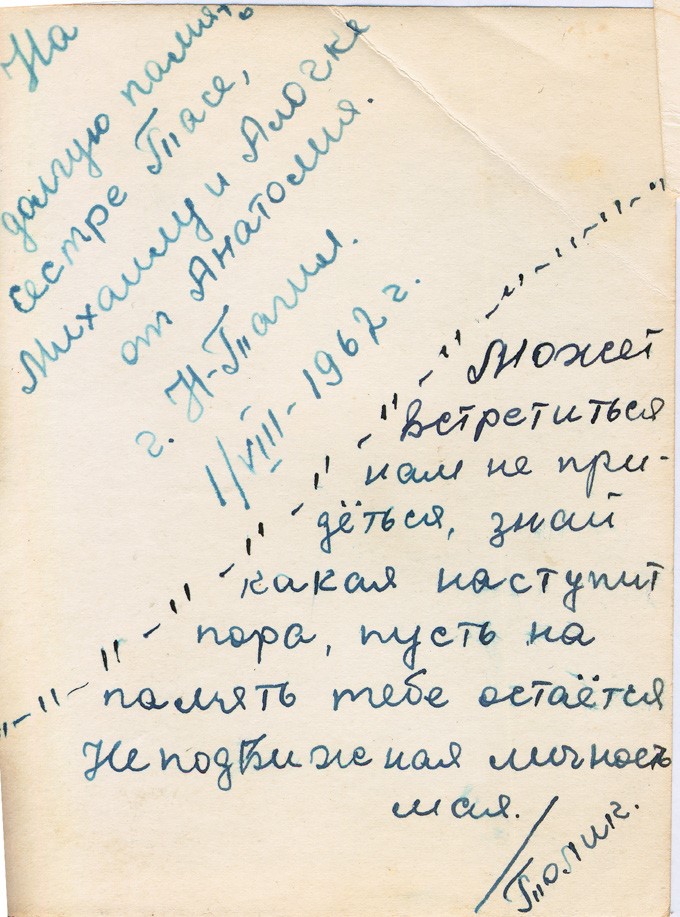 На
долгую память
сестре Тасе,
Михаилу и Алочке
от Анатолия.
г. Н-Тагил.
1/VIII-1962 г.
Может
встретиться
нам не при-
дёться, знай
какая наступит
пора, пусть на
память тебе остаётся
Неподвижная личность
мая.